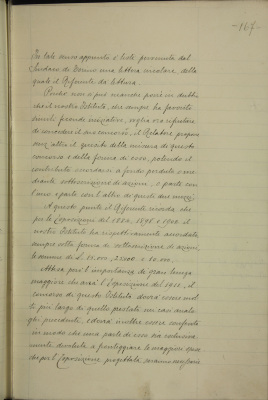 -167-
Per tale scopo appunto è stata pervenuta dal
Sindaco di Torino una lettera circolare, della
quale il Referente dà lettura.
Poiché non si può neanche porre in dubbio
che il nostro Istituto, che sempre ha favorito
simili feconde iniziative, voglia ora rifiutare
di concedere il suo concorso, il Relatore propone
senz'altro il quesito della misura di questo
concorso e della forma di esso, potendo il
contributo accordarsi a fondo perduto o me-
diante sottoscrizione di azioni, o parte con
l'uno e parte con l'altro di questi due mezzi.
A questo punto il Referente ricorda che
per le Esposizioni del 1884, 1898 e 1902 il
nostro Istituto ha rispettivamente accordato,
sempre sotto forma di sottoscrizione di azioni,
le somme di L.
Attesa però l'importanza di gran lunga
maggiore che avrà l'Esposizione del 1911, il
concorso di questo Istituto dovrà essere mol-
to più largo di quello prestato nei casi analo-
ghi precedenti, e dovrà inoltre essere compiuto
in modo che una parte di esso sia esclusiva-
mente devoluta a fronteggiare le maggiori spese
che per l'Esposizione progettata saranno necessarie